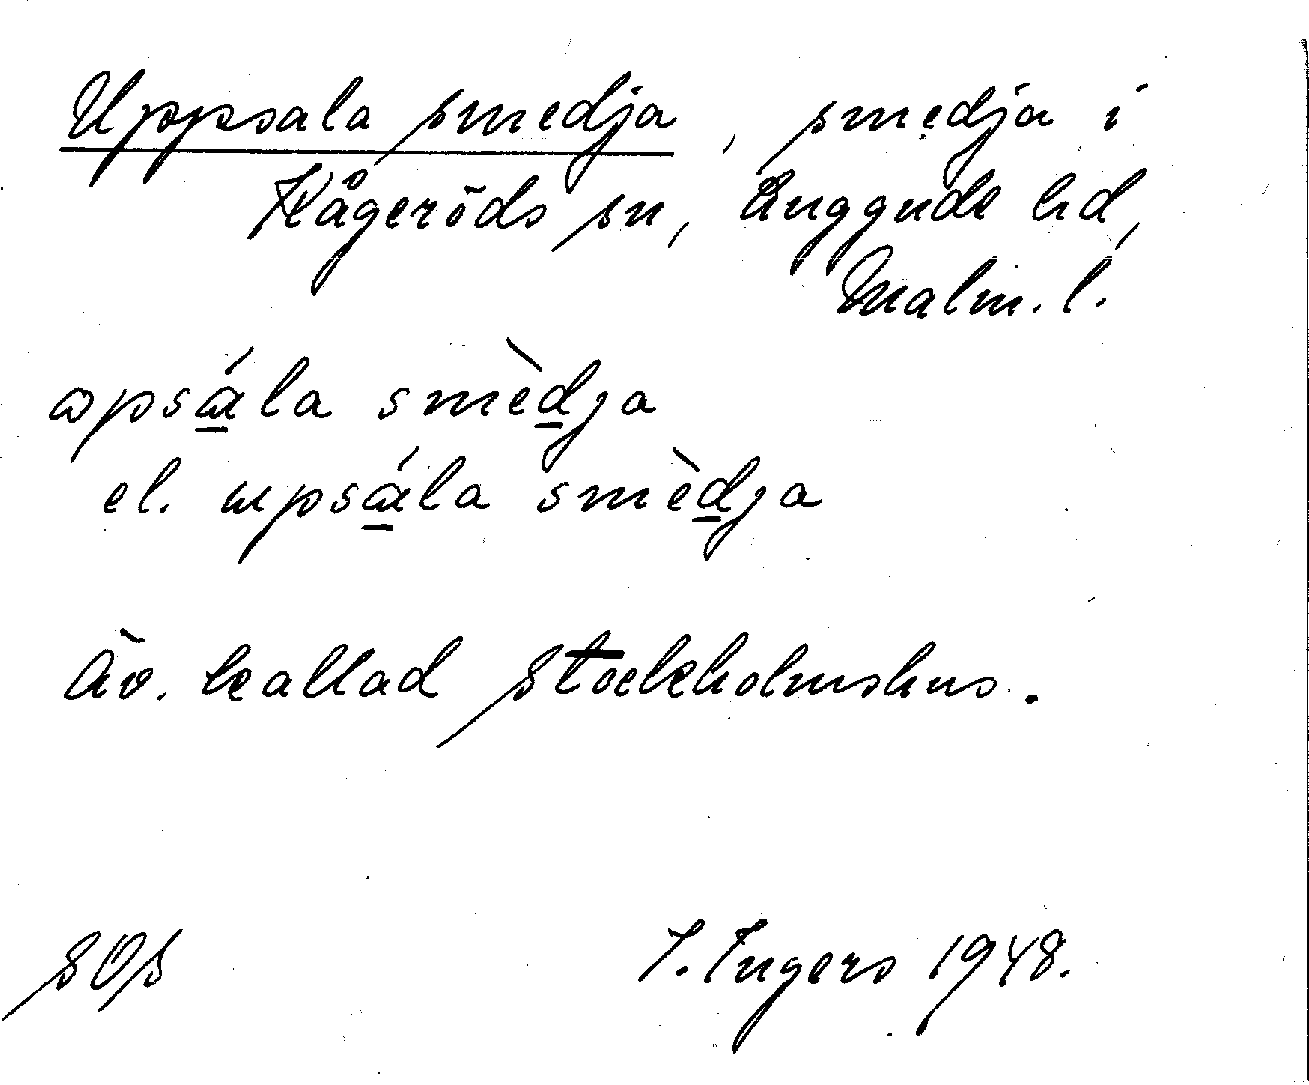 Uppsala smedja, smedja i
Kågeröds sn, Luggude hd,
Malm. l.
ωpsá̱la smèḏja
el. upsá̱la smèḏja
Äv. kallad Stockholmshus.
SOS
I. Ingers 1948.